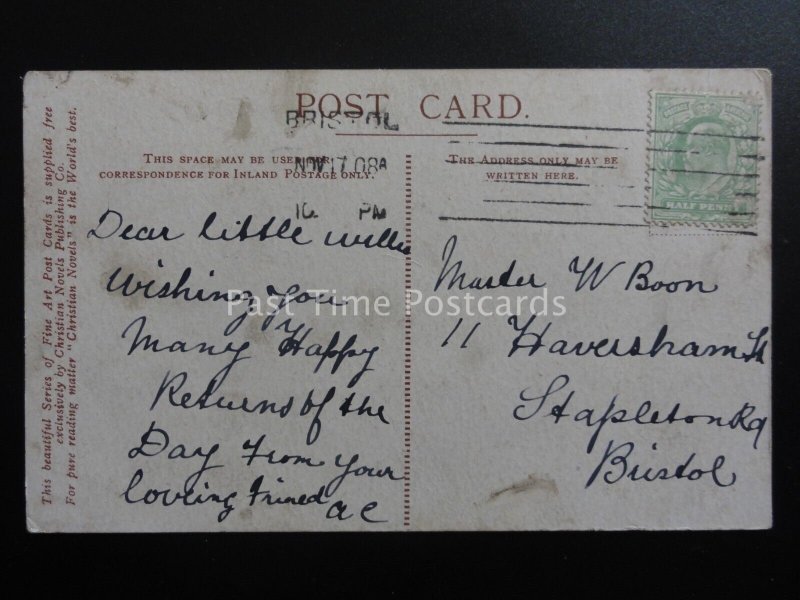 POST CARD.
BRISTOL
NOV 17 08
PM
THIS SPACE MAY BE USED
CORRESPONDENCE FOR INLAND POSTAGE ONLY.
THE ADDRESS ONLY MAY BE
WRITTEN HERE.
HALF PENNY
This beautiful Series of Fine Art Post Cards is supplied free
exclusively by Christian Novels Publishing Co.
For pure reading matter "Christian Novels" is the World's best.
Dear little Willie
Wishing you
Many Happy
Returns of the
Day From your
loveing Frined
A C
Master W Boon
11 Haversham St
Stapleton Rd
Bristol
Past Time Postcards